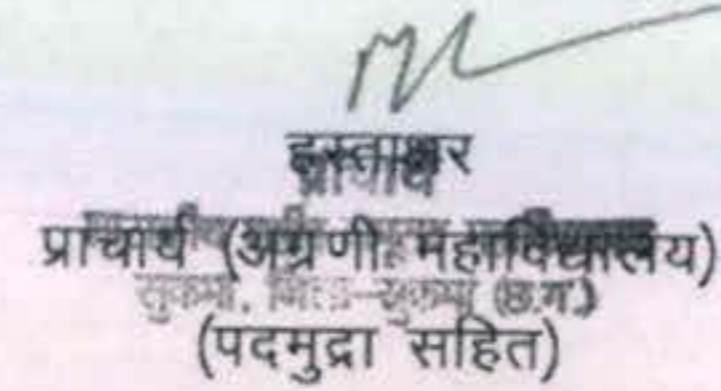 हस्ताक्षर
प्राचार्य
प्राचार्य (अग्रणी महाविद्यालय)
सुकमा, जिला-सुकमा (छ.ग.)
(पदमुद्रा सहित)